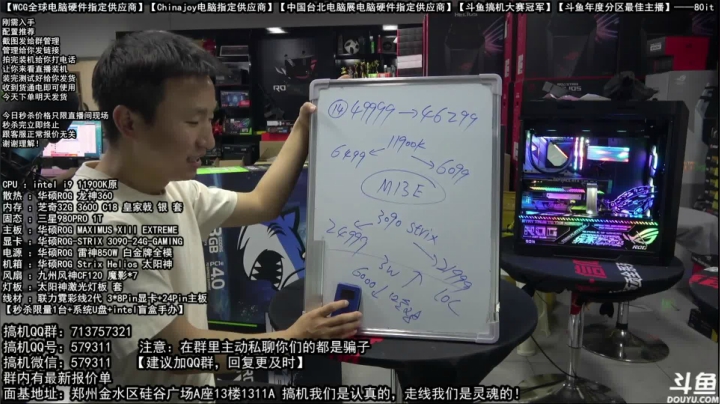 【WCG全球电脑硬件指定供应商】【Chinajoy电脑指定供应商】【中国台北电脑展电脑硬件指定供应商】【斗鱼搞机大赛冠军】【斗鱼年度分区最佳主播】——80it
刚需入手
配置推荐
截图发给群管理
管理给你发链接
拍完装机给你打电话
让你来看直播装机
装完测试好给你发货
收到货通电即可使用
今天下单明天发货
今日秒杀价格只限直播间现场
秒杀完立即终止
跟客服正常报价无关
谢谢理解！
CPU ：intel i9 11900K原
散热 ：华硕ROG 龙神360
内存 ：芝奇32G 3600 C18 皇家戟 银 套
固态 ：三星980PRO 1T
主板 ：华硕ROG MAXIMUS XIII EXTREME
显卡 ：华硕ROG-STRIX 3090-24G-GAMING
电源 ：华硕ROG 雷神850W 白金牌全模
机箱 ：华硕ROG Strix Helios 太阳神
风扇 ：九州风神CF120 魔影*7
灯板 ：太阳神激光灯板 套
线材 ：联力霓彩线2代 3*8Pin显卡+24Pin主板
【秒杀限量1台+系统U盘+intel盲盒手办】
搞机QQ群：713757321
搞机QQ号：579311 注意：在群里主动私聊你们的都是骗子
搞机微信：579311 【建议加QQ群，回复更及时】
群内有最新报价单
面基地址：郑州金水区硅谷广场A座13楼1311A 搞机我们是认真的，走线我们是灵魂的！
⑭ 49999→46299
11900K
6499
6099
M13E
3090 Strix
24999
21999
3W
10C
斗鱼
DOUYU.COM